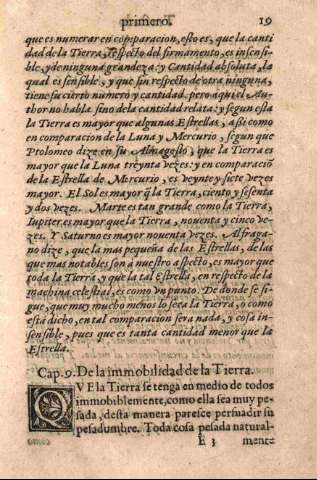 primero. 19
que es numerar en comparacion, esto es, que la canti
dad de la Tierra, respecto del firmamento, es insensi
ble, y de ninguna grandeza: y Cantidad absoluta, la
qual es sensible, y que su respecto de otra ninguna,
tiene su cierto numero y cantidad. pero aqui el Au-
thor no habla sino de la cantidad relata: y segun esta
la Tierra es mayor que algunas Estrellas, assi como
en comparacion de la Luna y Mercurio, segun que
Ptolomeo dize en su Almagesto, que la Tierra es
mayor que la Luna treynta vezes: y en comparació
de la Estrella de Mercurio, es veynte y siete vezes
mayor. El Sol es mayor q̃ la Tierra, ciento y sesenta
y dos vezes. Marte es tan grande como la Tierra,
Iupiter es mayor que la Tierra, nouenta y cinco ve-
zes. Y Saturno es mayor nouenta vezes. Alfraga-
no dize, que la mas pequeña de las Estrellas, de las
que mas notables son à nuestro aspecto, es mayor que
toda la Tierra, y que la tal Estrella, en respecto de la
machina celestial, es como vn punto. De donde se si-
gue, que muy mucho menos lo sera la Tierra, o como
está dicho, en tal comparacion sera nada, y cosa in-
sensible, pues que es tanta cantidad menor que la
Estrella.
Cap. 9. De la immobilidad de la Tierra.
QVE la Tierra se tenga en medio de todos
immobiblemente, como ella sea muy pe-
sada, desta manera paresce persuadir su
pesadumbre. Toda cosa pesada natural-
E 3 mente